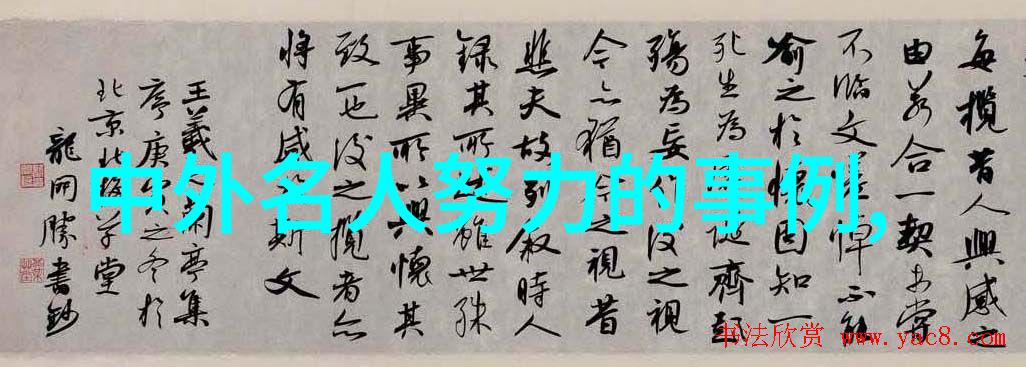 每攬昔人興感之
由若合一契未嘗
不臨文嗟悼不能
喻之於懷固知一
死生為誕齊彭
殤為妄作後之視
今亦猶今之視昔
悲夫故列叙時人
錄其所述雖世殊
事異所以興懷其
致一也後之攬者亦
將有感斯文
王羲蘭亭集
序庚寅之冬於
北京北草堂
龍開勝書鈔
中外名人努力的事例,
书法欣赏 www.yac8.com